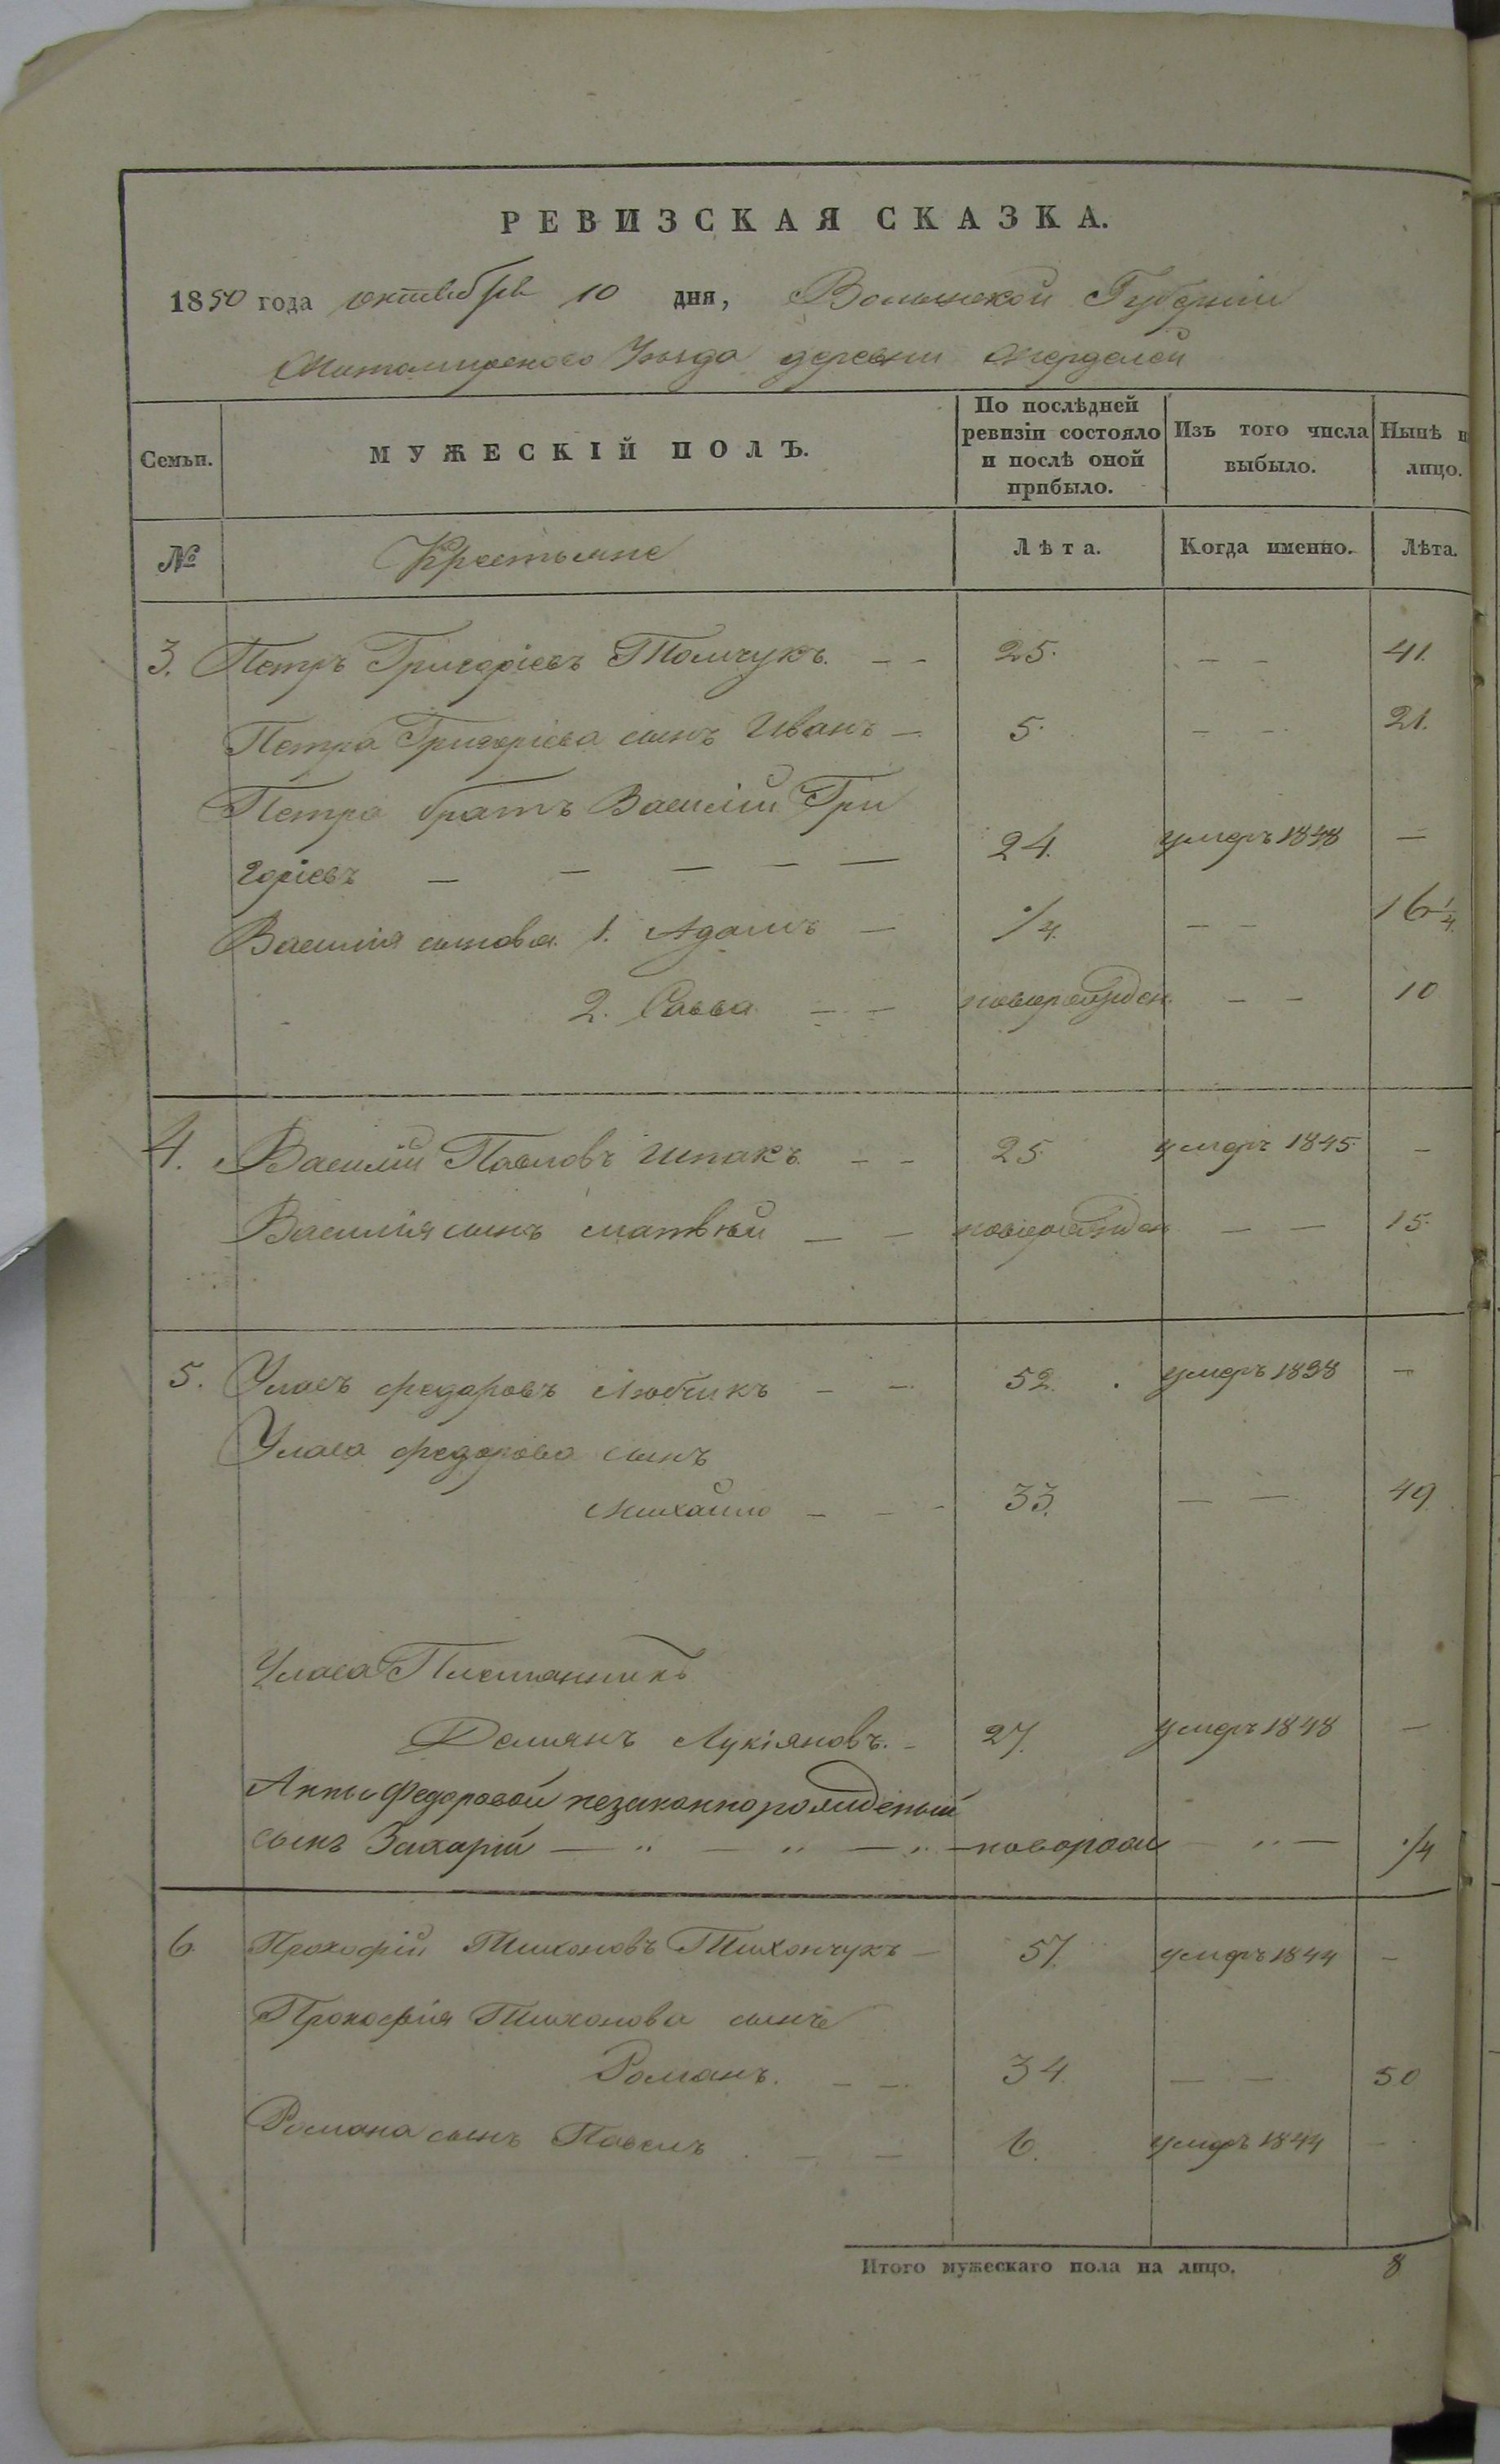 РЕВИЗСКАЯ СКАЗКА.
1850 года октября 10 дня, Волынской Губерніи
Житомирскаго Уѣзда деревни
Семьи. МУЖЕСКІЙ ПОЛЪ. По послѣдней ревизіи состояло и послѣ оной прибыло. Изъ того числа выбыло. Нынѣ н лицо.
№ Крестьяне Лѣта. Когда именно. Лѣта.
3. Петръ Григоріевъ Томчукъ. — — 25. — — 41.
Петра Григорієва сынъ Иванъ — 5. — — 21.
Петра братъ Василій Гри
горіевъ — — — — — 24. умеръ 1848 —
Василія сыновья 1. Адамъ — 1/4. — — 16 1/4.
2. Савва — — новорожден. — — 10
4. Василій Павловъ Шпакъ — — 25. умеръ 1845. —
Василія сынъ Матвѣй — — новорожден — — 15.
5. Уласъ Федоровъ Любчикъ — — 52. умеръ 1838 —
Уласа Федорова сынъ
Михайло — — — 33. — — 49.
Уласа Племянникъ
Демянъ Лукіяновъ. — 27. умеръ 1848 —
Анны Федоровой незаконнорожденый
сынъ Захарій — „ — „ — „ — новорож — „ — 1/4
6. Прокофій Тихоновъ Тихончукъ — 57. умеръ 1844 —
Прокофія Тихонова сынъ
Романъ. — — 34. — — 50
Романа сынъ Павелъ — — 6. умеръ 1844 —
Итого мужескаго пола на лицо. 8